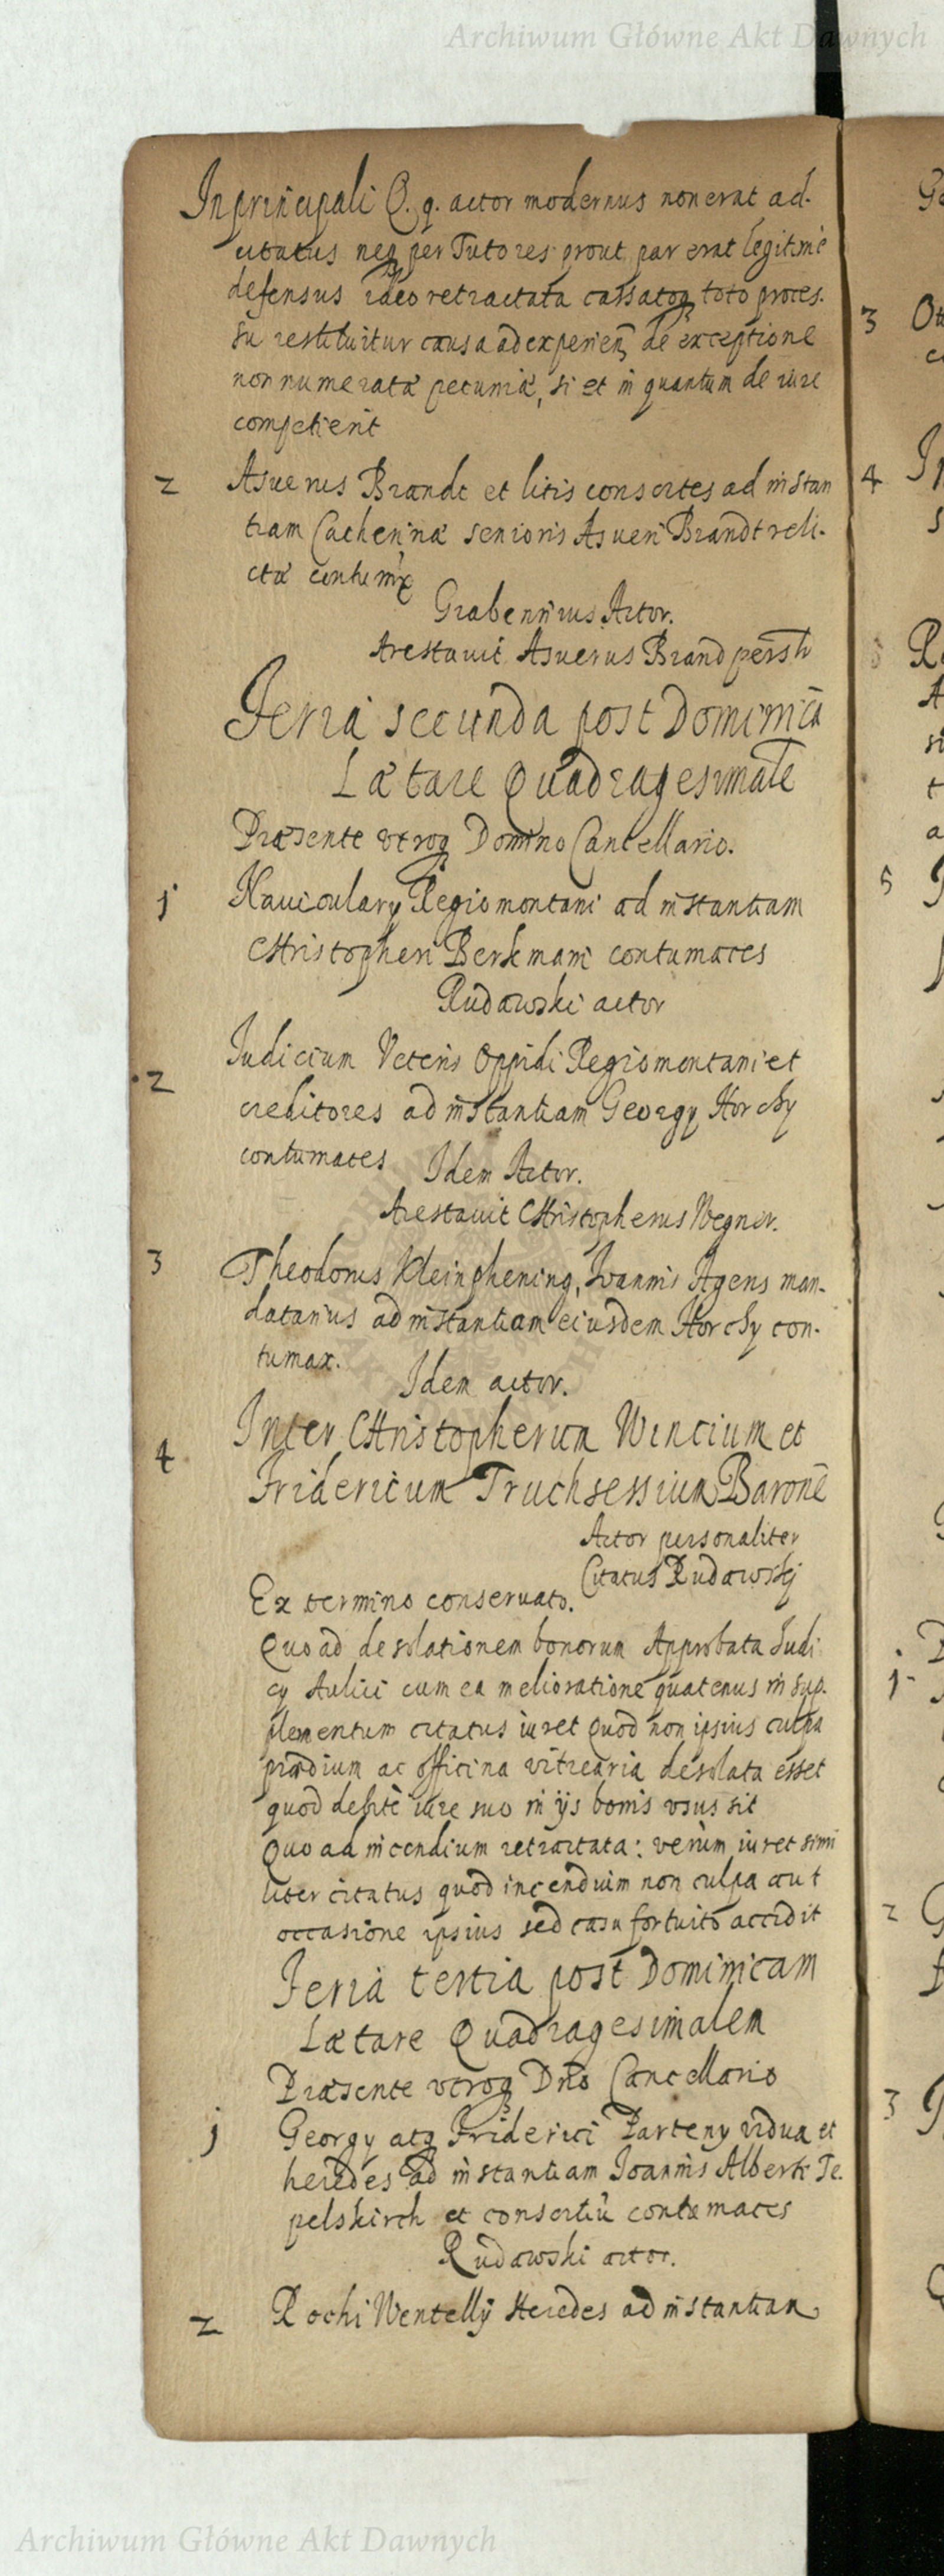 Archiwum Główne Akt Dawnych
In principali Q. q. actor modernus non erat ad-
citatus neq per Tutores prout par erat legitime
defensus ideo retractata cassatoq toto proces-
su restituitur causa ad experien de exceptione
non numeratæ pecuniæ, si et in quantum de iure
competierit
2 Asuerus Brandt et litis consortes ad instan
tiam Catherinæ senioris Asueri Brandt reli-
ctæ
Grabennius Actor.
Arestavit Asuerus Brand
Feria secunda post Dominicã
Lætare Quadragesimalẽ
Præsente utroq Domino Cancellario.
1 Naviculary Regiomontani ad instantiam
Christopheri Berkmani contumaces
Rudawski actor
2 Iudicium Veteris Oppidi Regiomontani et
creditores ad instantiam Georgy Horchy
contumaces Idem Actor.
Arestavit Christopherus Wegner.
3 Theodorus Kleinphening, Ioannis Agens man-
datarius ad instantiam eiusdem Horchy con-
tumax.
Idem actor.
4 Inter Christopherum Wincium et
Fridericum Truchsessium Baronẽ
Actor personaliter
Citatus Rudawskj
Ex termino conservato.
Quo ad desolationem bonorum Approbata Iudi
cy Aulici cum ea melioratione quatenus in sup-
plementum citatus iuret quod non ipsius culpa
prædium ac officina vitrearia desolata esset
quod iure suo in ijs bonis usus sit
Quo ad incendium retractata: verum iuret simi
liter citatus quod incendium non culpa aut
occasione ipsius sed casu fortuito accidit
Feria tertia post Dominicam
Lætare Quadragesimalem
Præsente utroq Dno Cancellario
1 Georgy atq Friderici Parteny vidua et
heredes ad instantiam Ioannis Alberti Te-
pelskirch et consortiũ contumaces
Rudawski actor.
2 Rochi Wentellÿ Heredes ad instantiam
3
4
5
1
2
3
Archiwum Główne Akt Dawnych